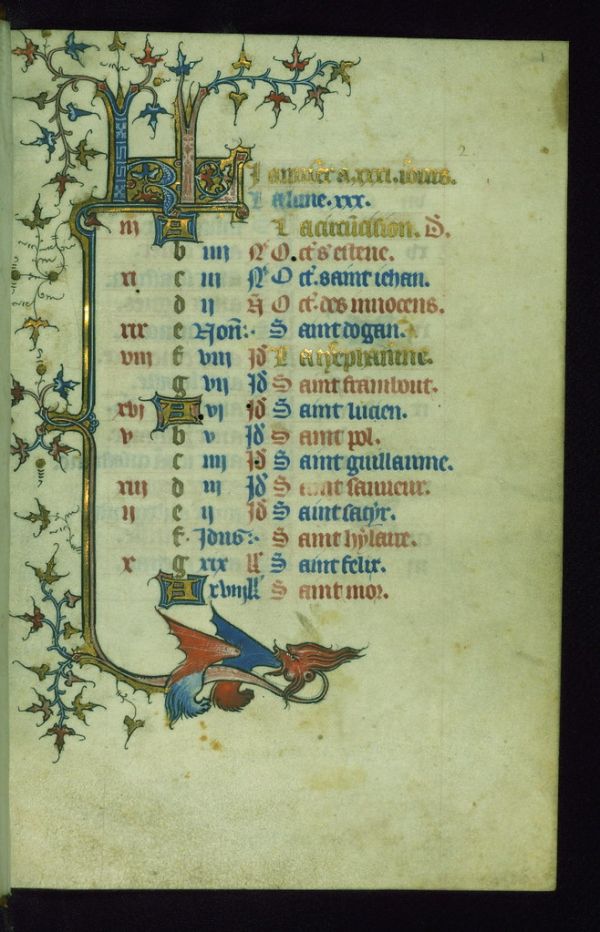 1
2
KL Januier a. xxxi. iours.
La lune. xxx.
iij A La circūcision. D.
b iiij N' Oct' s' estene.
xi c iij N' Oct'. saint iehan.
d ij N' Oct'. des innocens.
xix e Non': Saint dogan.
viij f viij Id' La
g vij Id' Saint frambout.
xvj A vj Id' Saint lucien.
v b v Id' Saint pol.
c iiij Id' Saint guillaume.
xiij d iij Id' Saint sauueur.
ij e ij Id' Saint satyr.
f Idus: Saint hylaire.
x g xix kl' Saint felix.
A xviij kl' Saint mor.